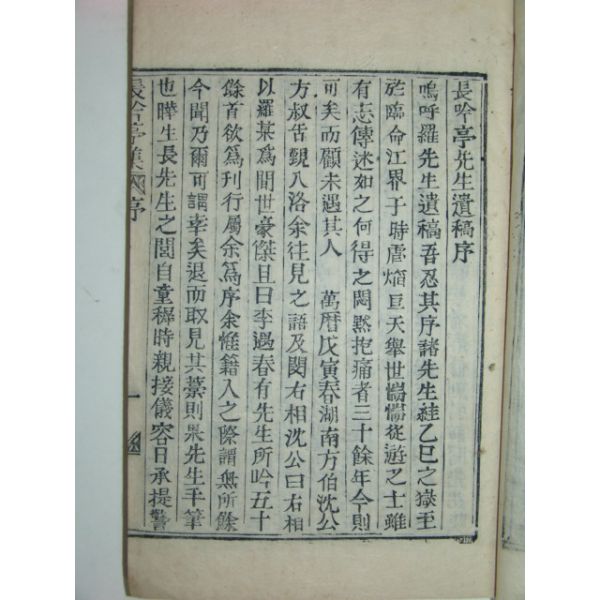 長吟亭先生遺稿序
嗚呼羅先生遺稿吾忍其序諸先生絓乙巳之獄至
於臨命江界于時虐焰亘天舉世惴惴從遊之士雖
有志傳述如之何得之閟默抱痛者三十餘年今則
可矣而顧未遇其人 萬曆戊寅春湖南方伯沈公
方叔舌覲入洛余往見之語及閔右相沈公曰右相
以羅某爲間世豪傑且曰李遇春有先生所吟五十
餘首欲爲刊行屬余爲序余惟籍入之際謂無所餘
今聞乃爾可謂幸矣退而取見其藁則果先生手筆
也曄生長先生之閭自童穉時親接儀容日承提警
長吟亭集 序 一